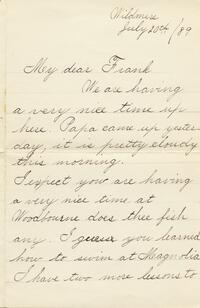 Wildmere
July 20th /89
My dear Frank
We are having
a very nice time up
here. Papa came up yester-
day, it is pretty cloudy
this morning.
I expect you are having
a very nice time at
Woodbourne does thee fish
any. I guess you learned
how to swim at Magnolia
I have two more lessons to